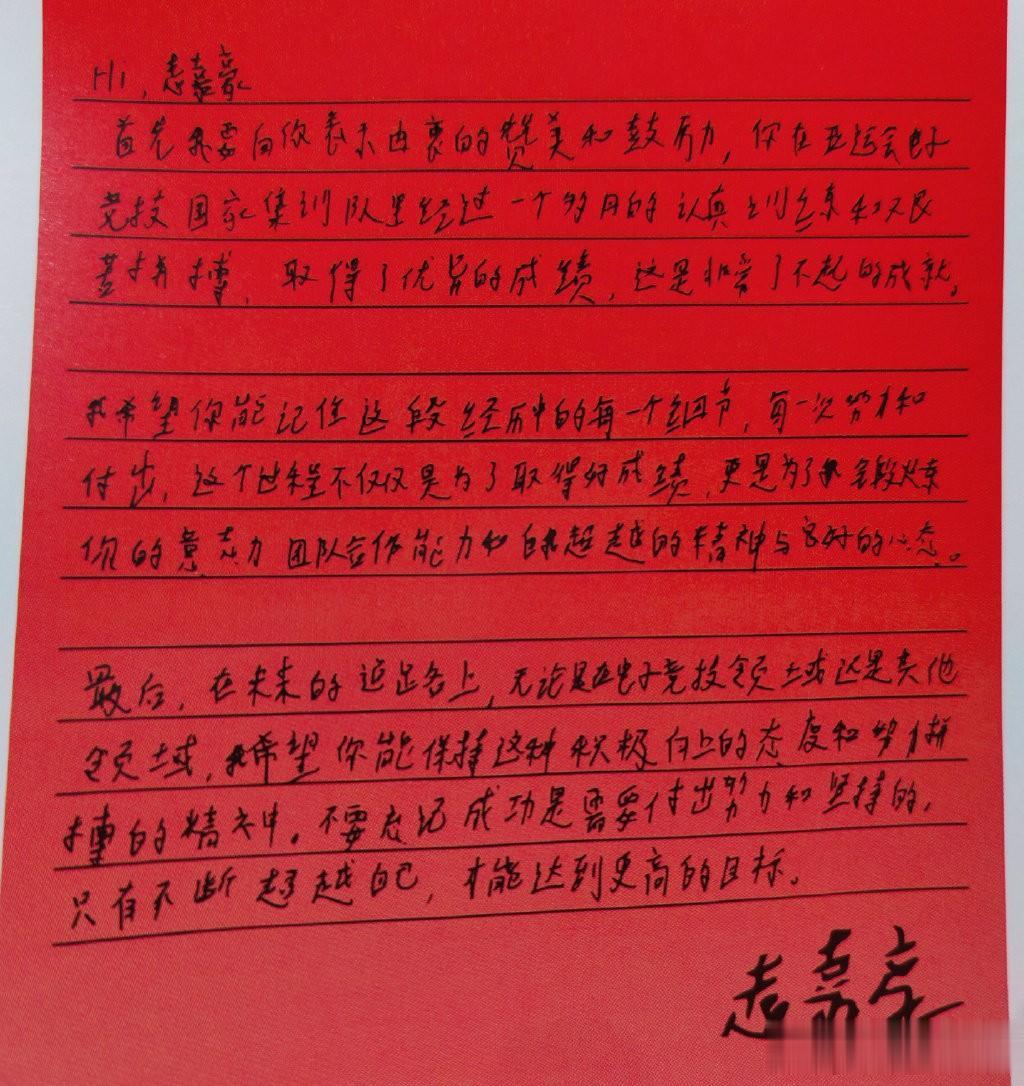 Hi, 赵嘉豪
首先我要向你表示由衷的赞美和鼓励, 你在亚运会电子
竞技国家集训队里经过一个多月的认真训练和艰
苦拼搏, 取得了优异的成绩, 这是非常了不起的成就。
我希望你能记住这段经历中的每一个细节, 每一次努力和
付出, 这个过程不仅仅是为了取得好成绩, 更是为了锻炼
你的意志力 团队合作能力和自我超越的精神与良好的心态。
最后, 在未来的道路上, 无论是在电子竞技领域还是其他
领域, 我希望你能保持这种积极向上的态度和努力拼
搏的精神。不要忘记成功是需要付出努力和坚持的,
只有不断超越自己, 才能达到更高的目标。
赵嘉豪